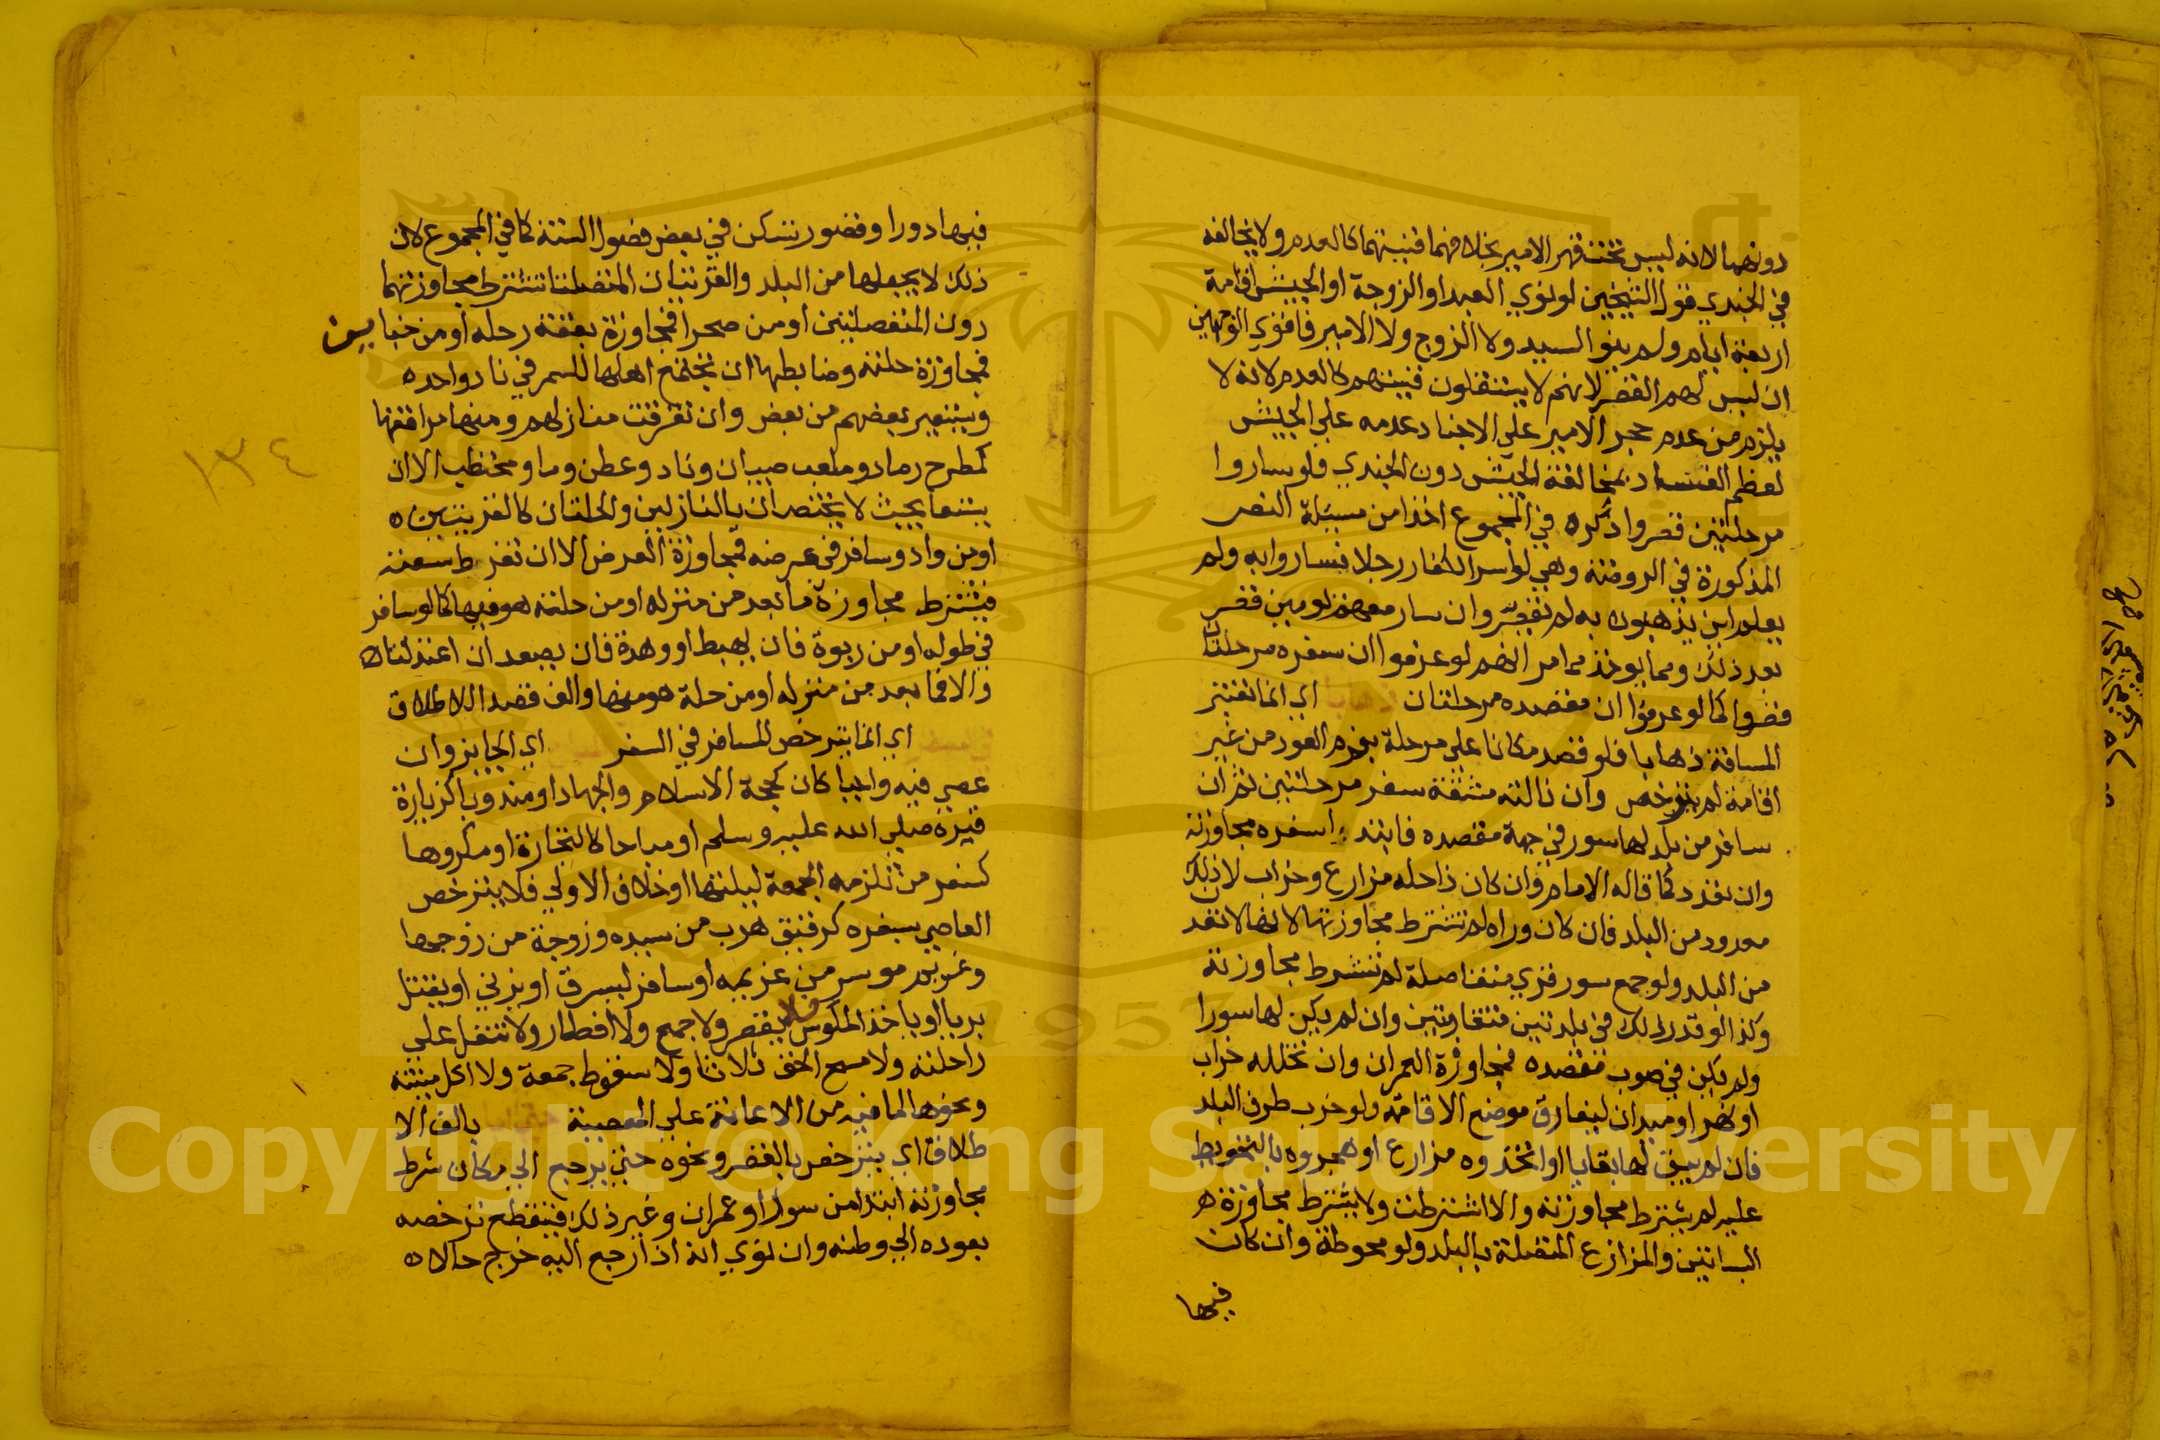 دونهما لانه ليس تحت قهر الامير بخلافهما فنيتهما كالعدم ولا يخالفه
في الجندي قول الشيخين لو نوي العبد او الزوجة او الجيش اقامة
اربعة ايام ولم ينو السيد ولا الزوج ولا الامير فاقوي الوجهين
ان ليس لهم القصر لانهم لا يستقلون فنيتهم كالعدم لانه لا
يلزم من عدم حجر الامير علي الاجناد عدمه علي الجيش
لعظم الفساد بمخالفة الجيش دون الجندي فلو ساروا
مرحلتين قصروا ذكره في المجموع اخذا من مسئلة النص
المذكورة في الروضة وهي لو اسر الكفار رجلا فساروا به ولم
يعلم اين يذهبون به لم يقصر وان سار معهم يومين قصر
بعد ذلك ومما يوخذ مما مر انهم لو عرفوا ان سفره مرحلتان
قصروا كما لو عرفوا ان مقصده مرحلتان ذهابا اي انما تعتبر
المسافة ذهابا فلو قصد مكانا علي مرحلة بعزم العود من غير
اقامة لم يترخص وان نالته مشقة سفر مرحلتين ثم ان
سافر من بلد لها سور في جهة مقصده فابتدا سفره مجاوزته
وان تعدد كما قاله الامام وان كان داخله مزارع وخراب لان ذلك
معدود من البلد فان كان وراه لم تشترط مجاوزتها لانها لا تعد
من البلد ولو جمع سور قري متفاصلة لم تشترط مجاوزته
وكذا لو قدر ذلك في بلدتين متقاربتين وان لم يكن لها سورا
ولم يكن في صوب مقصده فمجاوزة العمران وان تخلله خراب
او نهر او ميدان ليفارق موضع الاقامة ولو خرب طرف البلد
فان لم يبق لها بقايا او اتخذوه مزارع او هجروه بالتحويط
عليه لم يشترط مجاوزته والا اشترطت ولا يشترط مجاوزة ه
البساتين والمزارع المتصلة بالبلد ولو محوطة وان كان
فيها
فيها دورا وقصور تسكن في بعض فصول السنة كما في المجموع لان
ذلك لا يجعلها من البلد والقريتان المتصلتان تشترط مجاوزتهما
دون المنفصلتين او من صحرا فمجاوزة بقعة رحله او من خيام
فمجاوزة حلته وضابطها ان يجتمع اهلها للسمر في ناد واحد ه
ويستعير بعضهم من بعض وان تفرقت منازلهم ومنها مرافقها
كمطرح رماد وملعب صبيان وناد وعطن وما ومحتطب الا ان
يتسعا بحيث لا يختصان بالنازلين والحلتان كالقريتين ه
او من واد وسافر في عرضه فمجاوزة العرض الا ان تفرط سعته
فيشترط مجاوزة ما يعد من منزله او من حلته هو فيها كما لو سافر
في طوله او من ربوة فان يهبط او وهدة فان يصعد ان اعتدلتا ه
والا فما يعد من منزله او من حلة هو منها والف قصد الاطلاق
اي انما يترخص للمسافر في السفر اي الجايز وان
عصي فيه واجبا كان كحجة الاسلام والجهاد او مندوبا كزيارة
قبره صلي الله عليه وسلم او مباحا كالتجارة او مكروها
كسفر من تلزمه الجمعة ليلتها او خلاف الاولي فلا يترخص
العاصي بسفره كرقيق هرب من سيده وزوجة من زوجها
وغريم موسر من غريمه او سافر ليسرق او يزني او يقتل
بريا او ياخذ المكوس فلا يقصر ولا جمع ولا افطار ولا تنفل علي
راحلته ولا مسح الخف ثلاثا ولا سقوط جمعة ولا اكل ميتة
ونحوها لما فيه من الاعانة علي المعصية بالف الا
طلاق اي يترخص بالقصر ونحوه حتي يرجع الي مكان شرط
مجاوزته ابتدا من سور او عمران وغير ذلك فينقطع ترخصه
بعوده الي وطنه وان نوي انه اذا رجع اليه خرج حالا ه
١٣٤
1957
Copyright © King Saud University